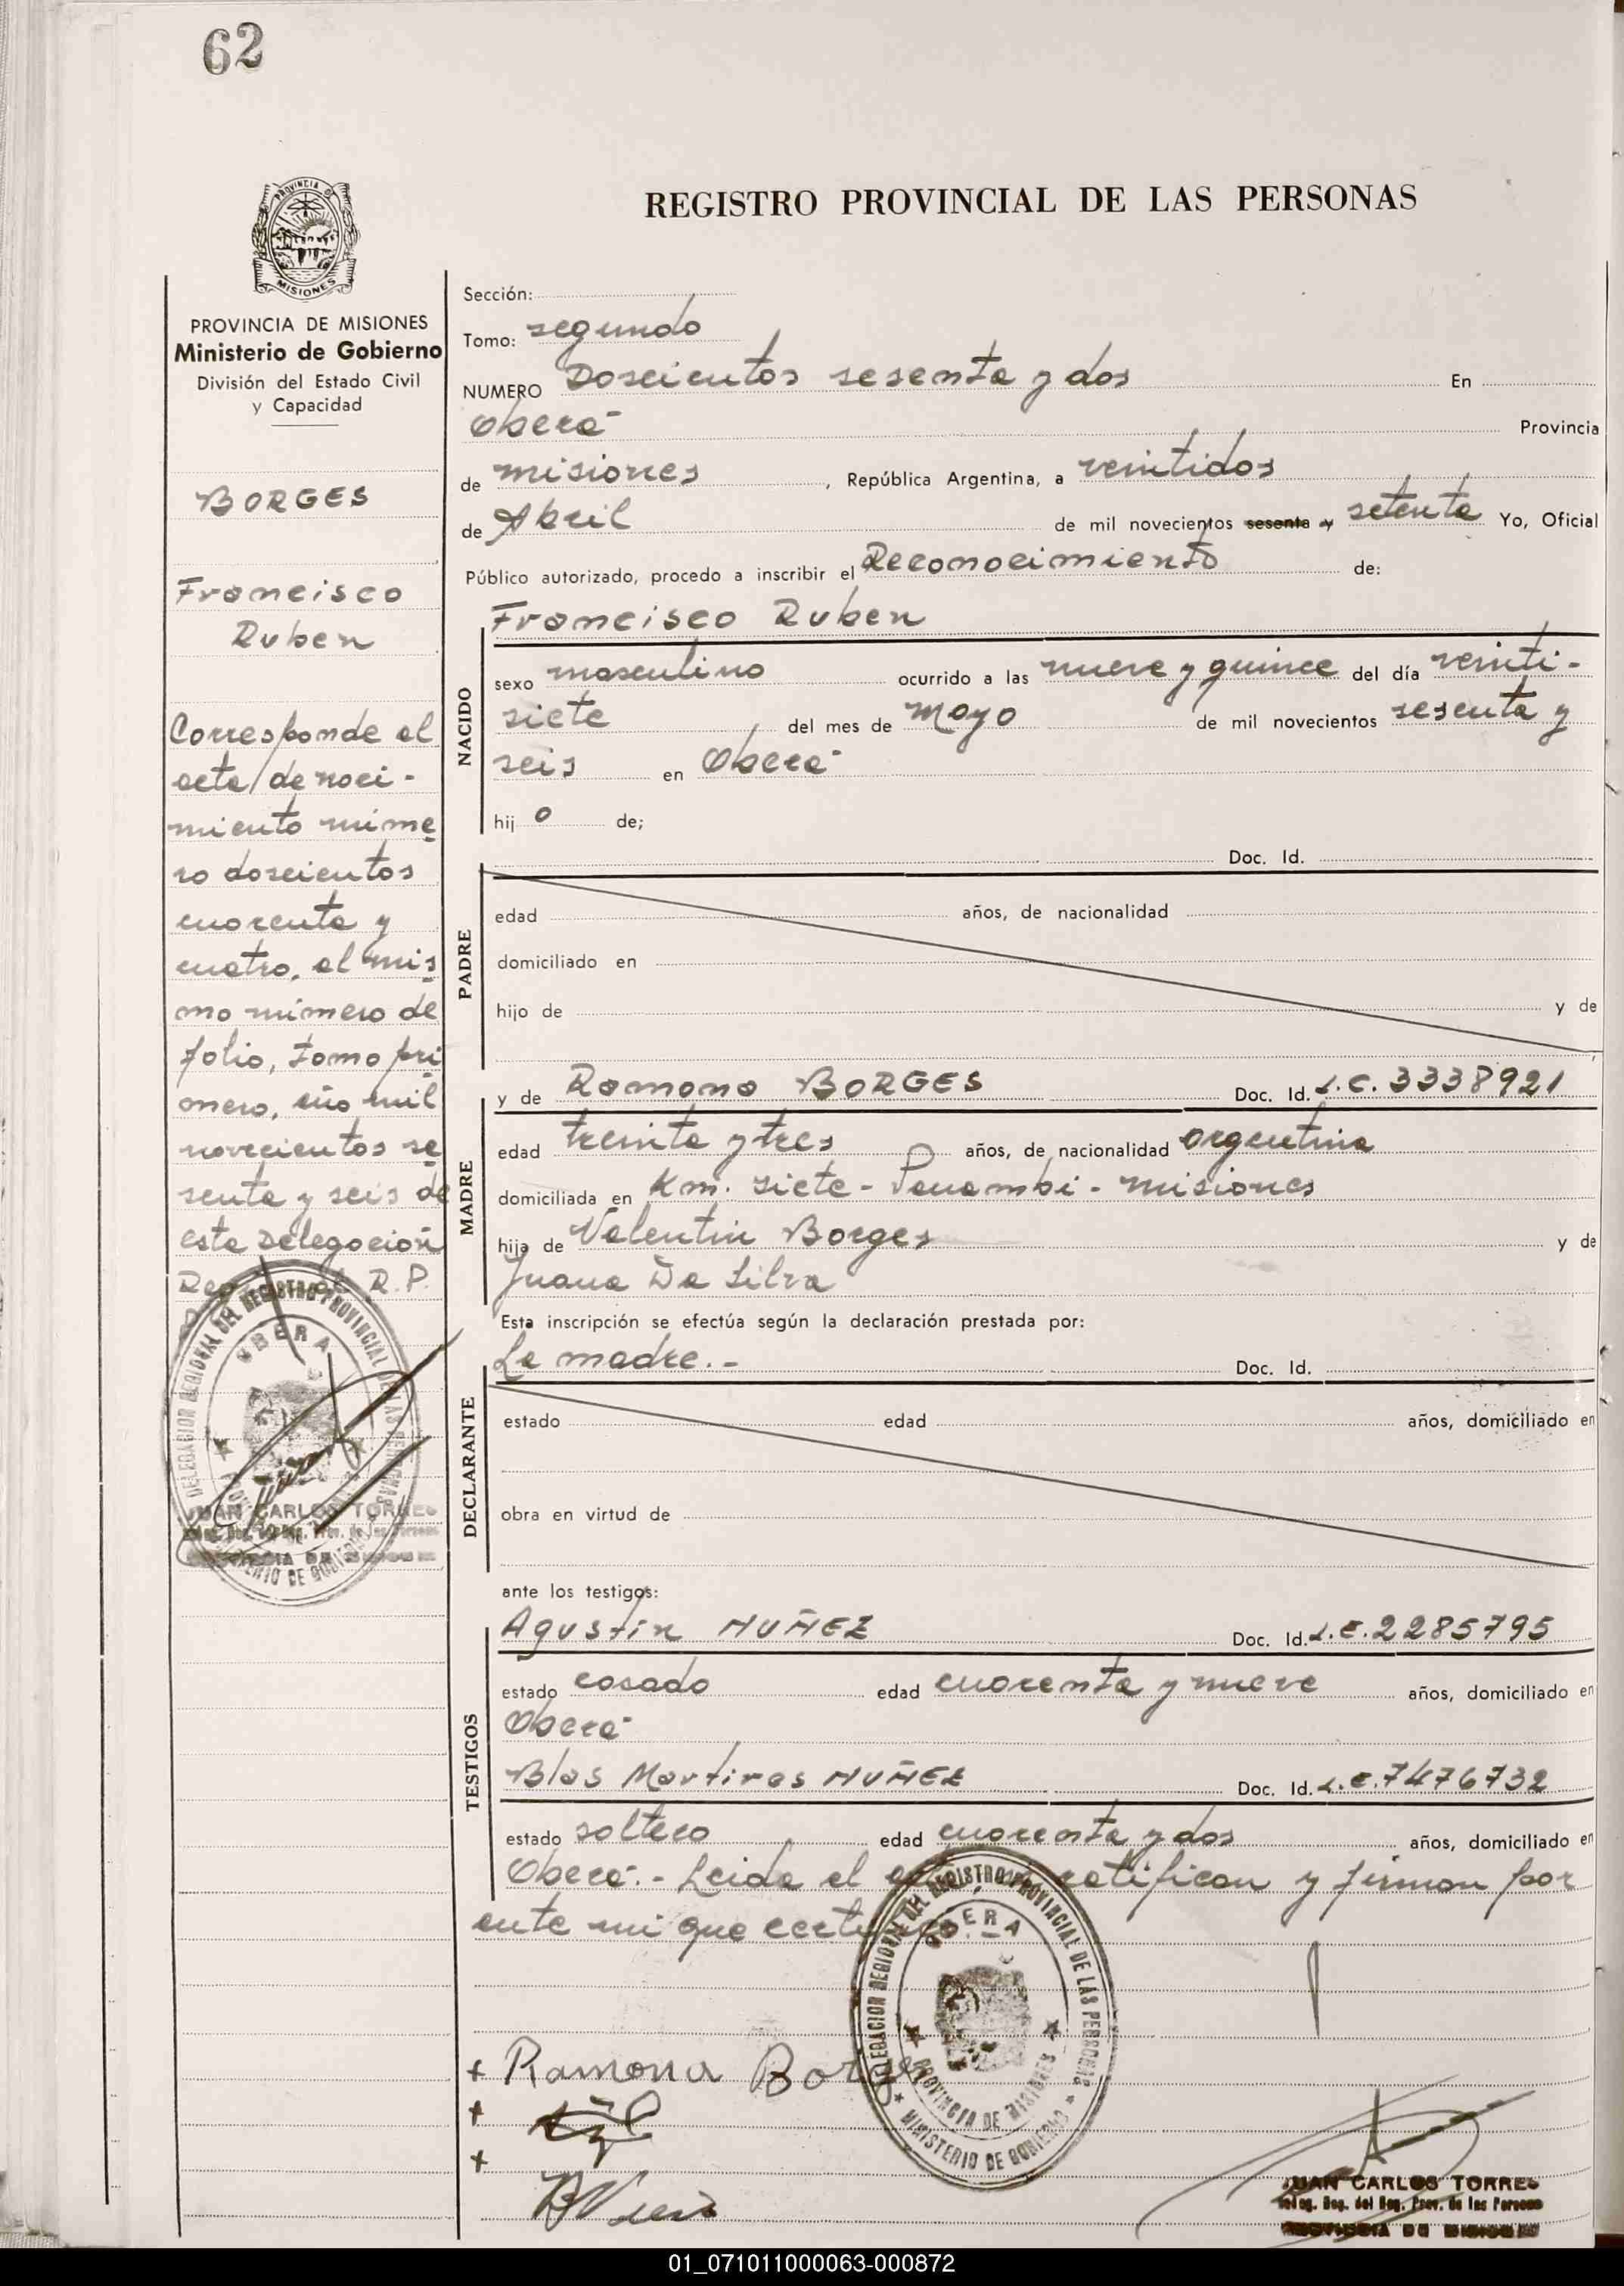 62
PROVINCIA DE
MISIONES
REGISTRO PROVINCIAL DE LAS PERSONAS
PROVINCIA DE MISIONES
Ministerio de Gobierno
División del Estado Civil
y Capacidad
BORGES
Francisco
Ruben
Corresponde al
acta/de naci-
miento núme
ro doscientos
cuarenta y
cuatro, al mis
mo número de
folio, tomo pri
mero, año mil
novecientos se
senta y seis de
esta Delegación
R.P.
DELEGACION REGIONAL DEL REGISTRO PROVINCIAL DE LAS PERSONAS
OBERA
MINISTERIO DE GOBIERNO
JUAN CARLOS TORRES
Sección:
Tomo: segundo
NUMERO Doscientos sesenta y dos En
Oberá Provincia
de misiones, República Argentina, a veintidos
de Abril de mil novecientos sesenta y setenta Yo, Oficial
Público autorizado, procedo a inscribir el Reconocimiento de:
Francisco Ruben
NACIDO
sexo masculino ocurrido a las nueve y quince del día veinti-
siete, del mes de Mayo de mil novecientos sesenta y
seis en Oberá
hij o de;
Doc. Id.
PADRE
edad años, de nacionalidad
domiciliado en
hijo de y de
y de Ramona BORGES Doc. Id. L.C. 3338921
MADRE
edad treinta y tres años, de nacionalidad argentina
domiciliada en Km. siete - Panambi - misiones
hija de Valentin Borges y de
Juana Da Silva
Esta inscripción se efectúa según la declaración prestada por:
La madre.- Doc. Id.
DECLARANTE
estado edad años, domiciliado en
obra en virtud de
ante los testigos:
Agustin NUÑEZ Doc. Id. L.E. 2285795
TESTIGOS
estado casado edad cuarenta y nueve años, domiciliado en
Oberá
Blas Martires NUÑEZ Doc. Id. L.E. 7476732
estado soltero edad cuarenta y dos años, domiciliado en
Oberá.- Leida el ratifican y firman por
ante mi que
DELEGACION REGIONAL DEL REGISTRO PROVINCIAL DE LAS PERSONAS
OBERA
PROVINCIA DE MISIONES
MINISTERIO DE GOBIERNO
+ Ramona Borges
+
+
JUAN CARLOS TORRES
Deleg. Reg. del Reg. Prov. de las Personas
PROVINCIA DE MISIONES
01_071011000063-000872